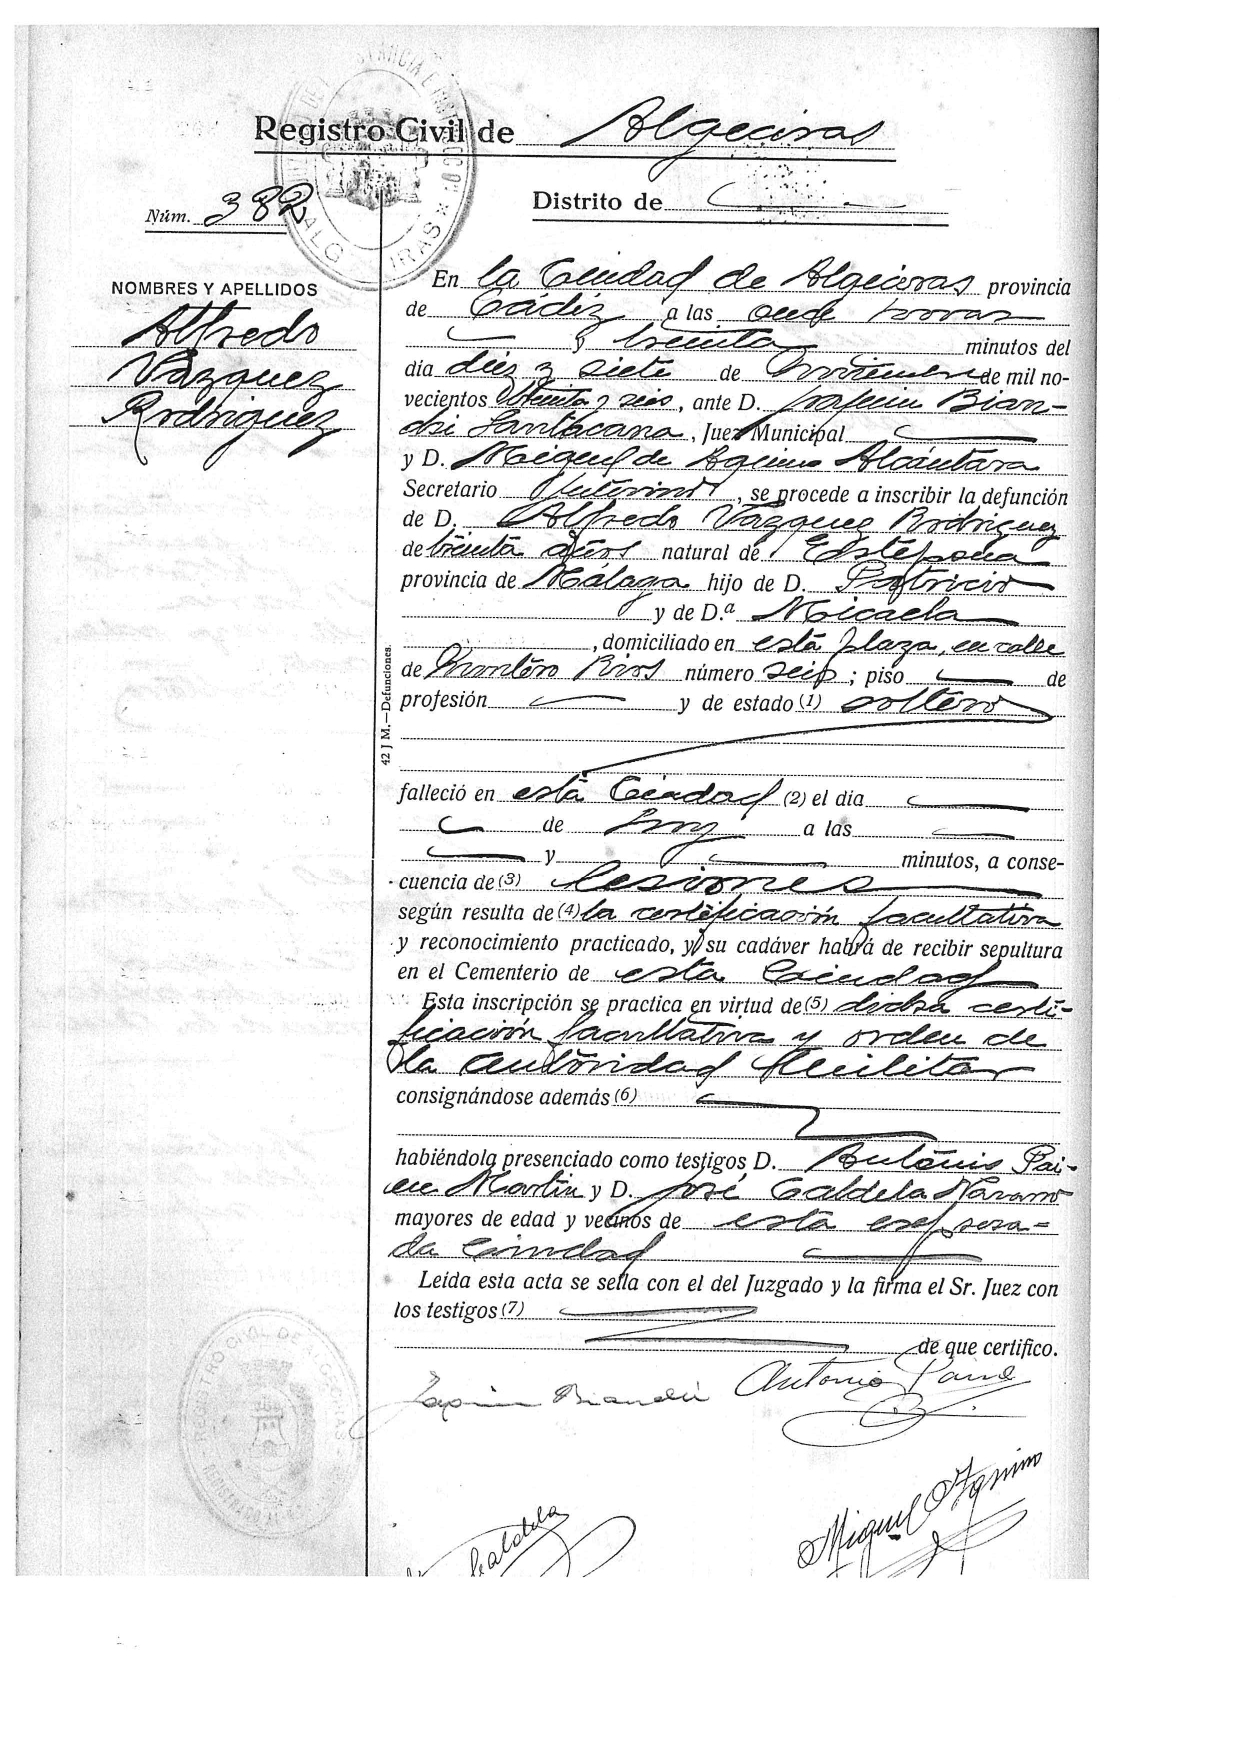 Registro Civil de Algeciras
Núm. 382
Distrito de
NOMBRES Y APELLIDOS
Alfredo
Vázquez
Rodríguez
En la Ciudad de Algeciras provincia
de Cádiz a las once horas
y treinta minutos del
día diez y siete de Noviembre de mil no-
vecientos treinta y seis, ante D. Joaquin Bian-
chi Santacana, Juez Municipal
y D. Miguel de Agnino Alcántara
Secretario Interino, se procede a inscribir la defunción
de D. Alfredo Vázquez Rodríguez
de treinta años natural de Estepona
provincia de Málaga hijo de D. Patricio
y de D.ª Micaela
, domiciliado en está plaza, en calle
de Montero Rios número seis; piso de
profesión y de estado (1) soltero
42 J M.—Defunciones.
falleció en está Ciudad (2) el día
de hoy a las
y minutos, a conse-
cuencia de (3) lesiones
según resulta de (4) la certificación facultativa
y reconocimiento practicado, y su cadáver habrá de recibir sepultura
en el Cementerio de esta Ciudad
Esta inscripción se practica en virtud de (5) dicha certi-
ficación facultativa y orden de
la autoridad Militar
consignándose además (6)
habiéndola presenciado como testigos D. Antonio
Martin y D. José Caldela Navarro
mayores de edad y vecinos de está expresa-
da Ciudad
Leída esta acta se sella con el del Juzgado y la firma el Sr. Juez con
los testigos (7)
de que certifico.
Joaquin Bianchi
Antonio
Caldela
Miguel Agnino